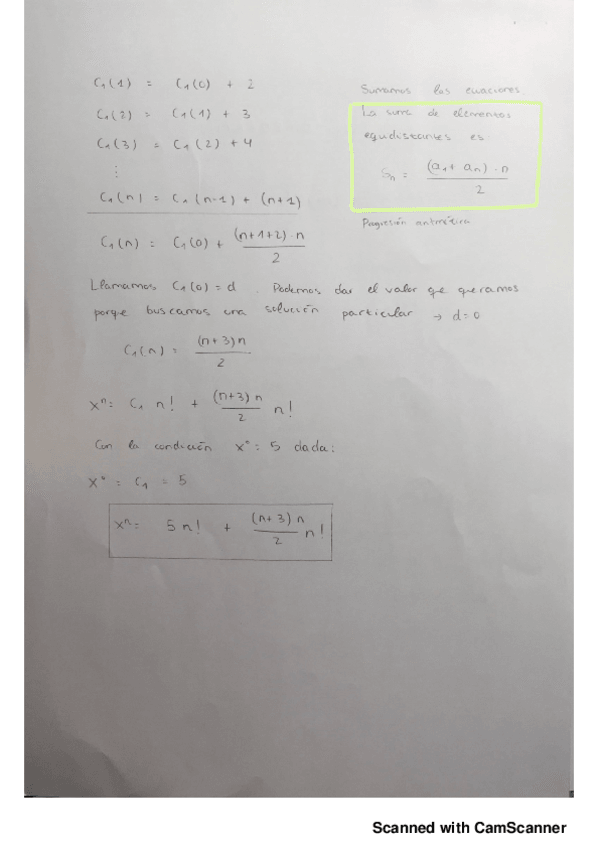 C₁(1) = C₁(0) + 2
C₁(2) = C₁(1) + 3
C₁(3) = C₁(2) + 4
⋮
C₁(n) = C₁(n-1) + (n+1)
C₁(n) = C₁(0) + (n+1+2)·n / 2
Sumamos las ecuaciones
La suma de elementos
equidistantes es
Sₙ = (a₁ + aₙ)·n / 2
Progresión aritmética
Llamamos C₁(0) = d. Podemos dar el valor que queramos
porque buscamos una solución particular → d=0
C₁(n) = (n+3)n / 2
xⁿ = C₁ n! + (n+3)n / 2 n!
Con la condición x⁰ = 5 dada:
x⁰ = C₁ = 5
xⁿ = 5n! + (n+3)n / 2 n!
Scanned with CamScanner